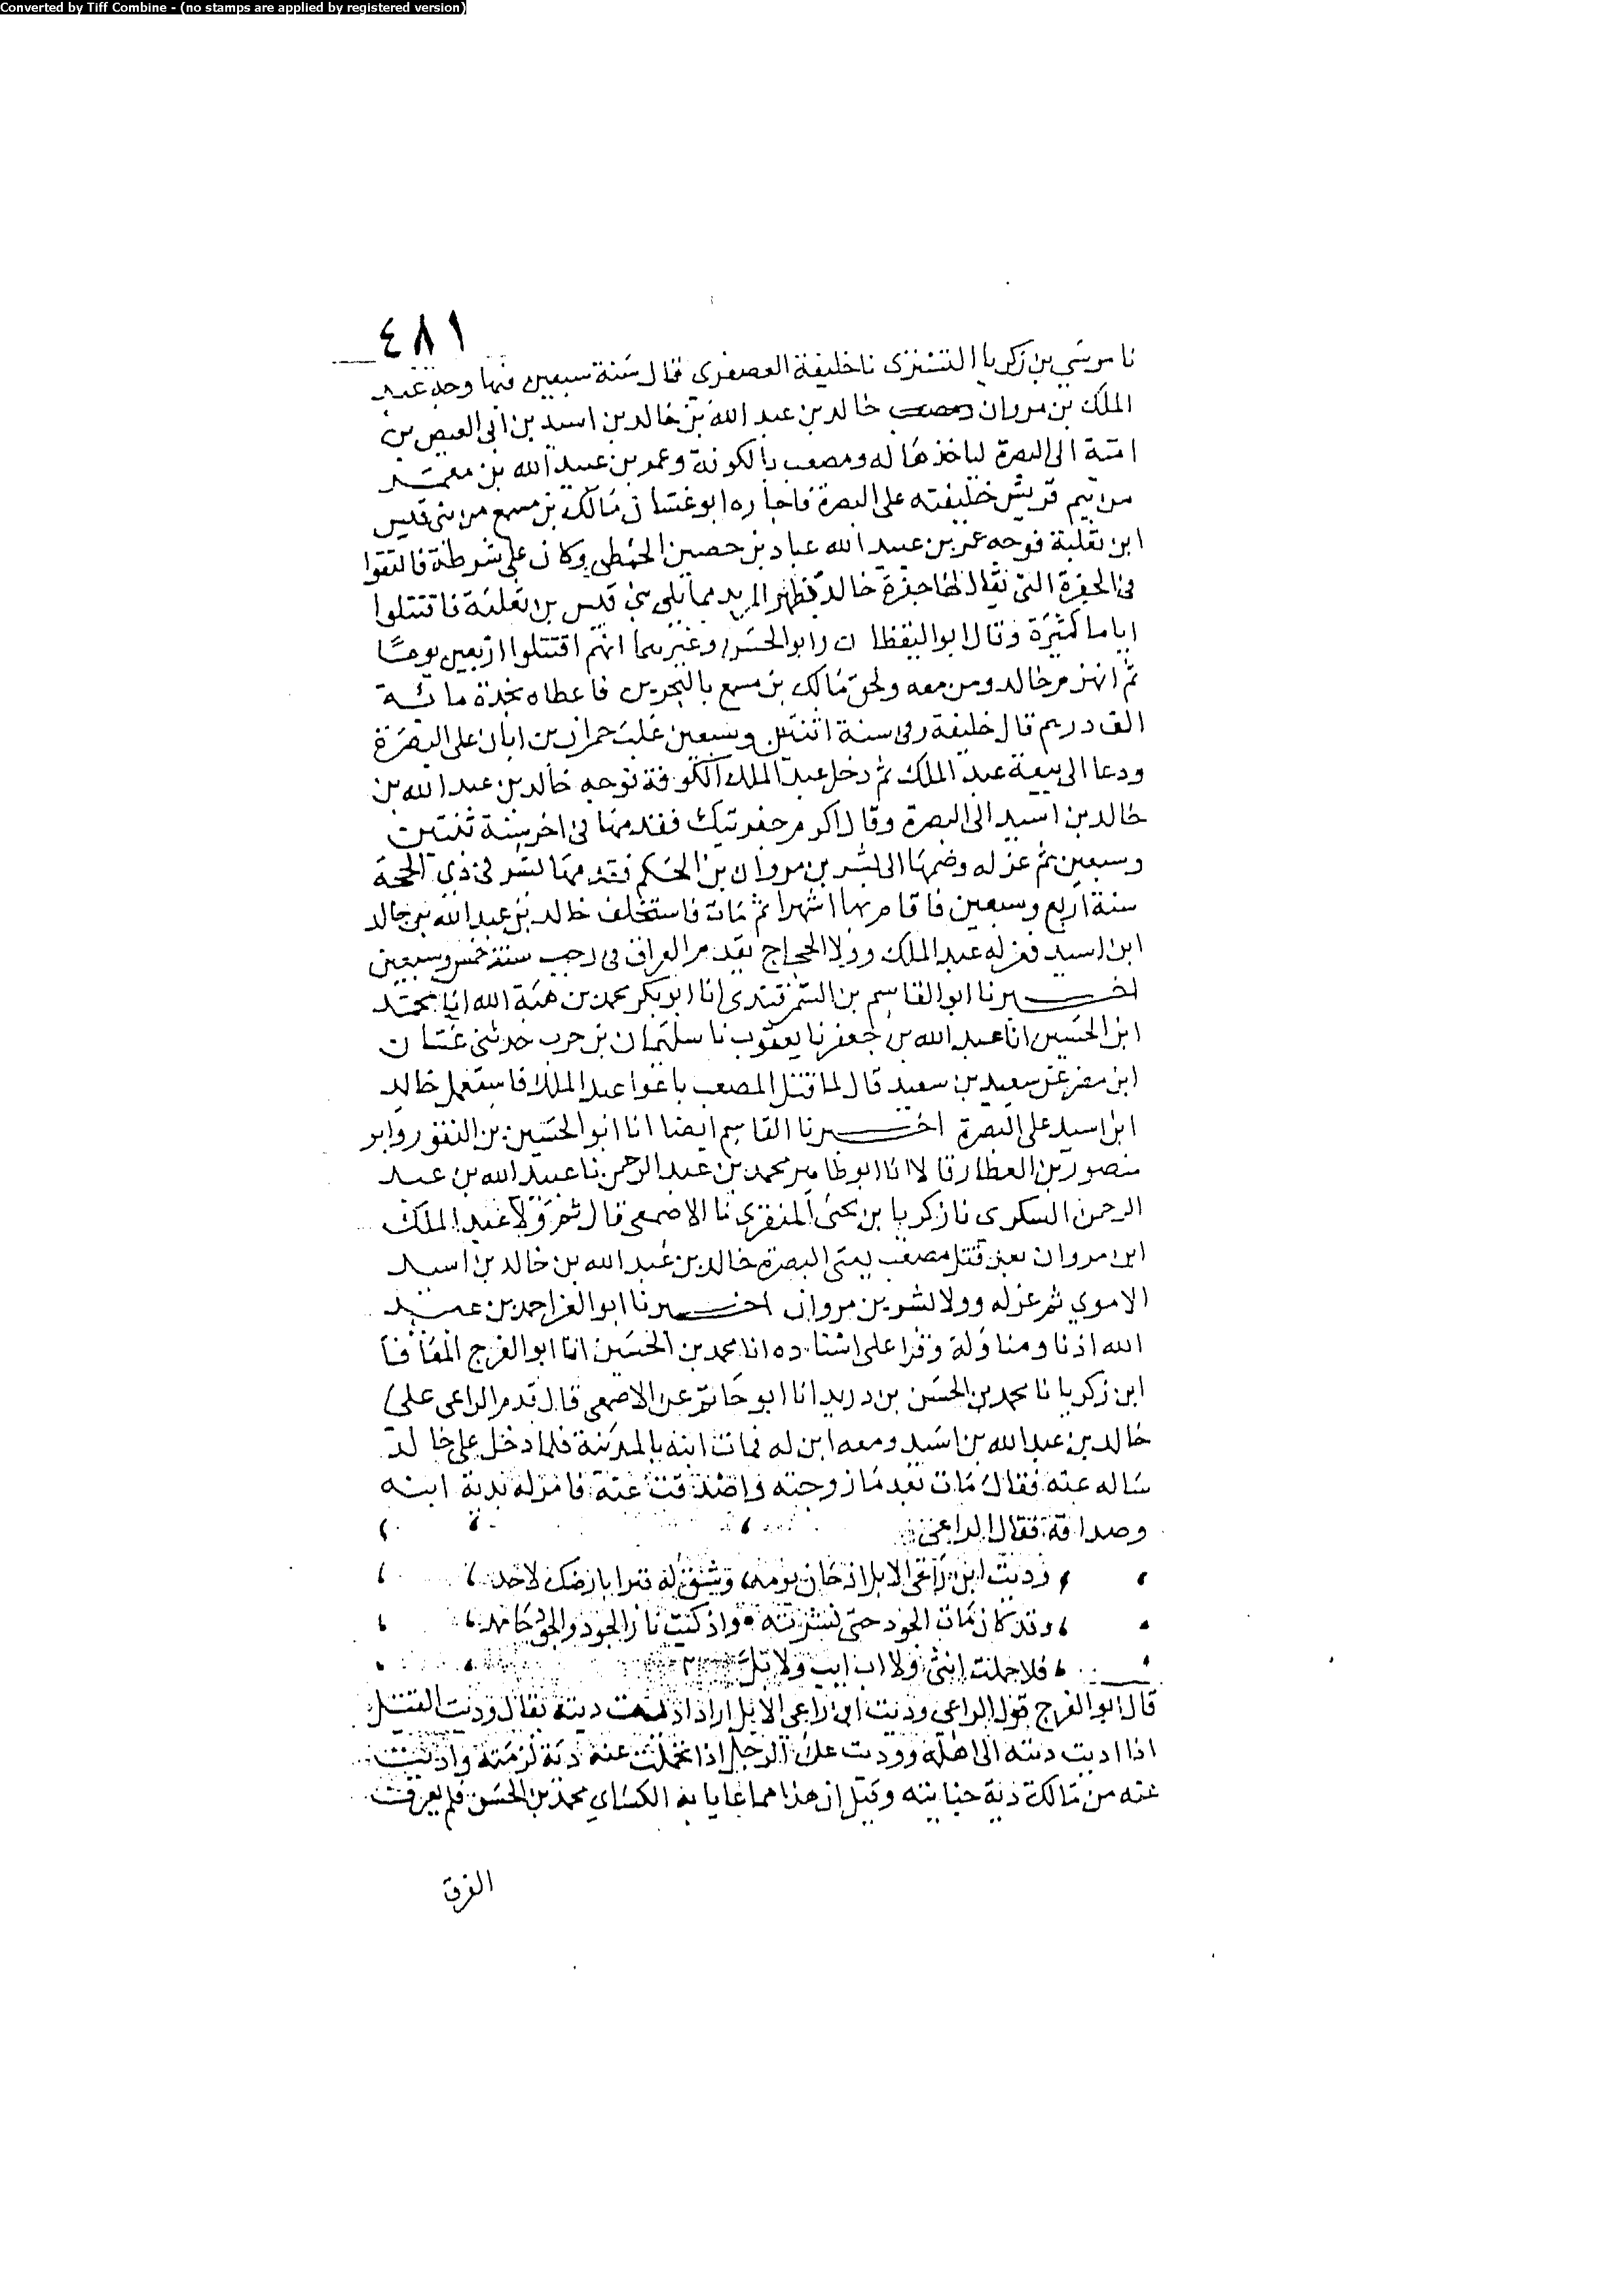 Converted by Tiff Combine - (no stamps are applied by registered version)
٤٨١
نا موسي بن زكريا التستري نا خليفة العصفري قال سنة سبعين فيها وجه عبد
الملك بن مروان خالد بن عبد الله بن خالد بن اسيد بن ابي العيص بن
امية الى البصرة لياخذها له ومصعب بالكوفة وعمر بن عبيد الله بن معمر
من تيم قريش خليفته على البصرة فاجاره ابو غسان مالك بن مسمع من بني قيس
ابن ثعلبة فوجه عمر بن عبيد الله عباد بن حصين الحبطي وكان على شرطته فالتقوا
في الجفرة التي يقال لها جفرة خالد بظهر المربد مما يلي بني قيس بن ثعلبة فاقتتلوا
اياما كثيرة وقال ابو اليقظان وابو الحسن وغيرهما انهم اقتتلوا اربعين يوما
ثم انهزم خالد ومن معه ولحق مالك بن مسمع بالبحرين فاعطاه نجدة مائة
الف درهم قال خليفة وفي سنة اثنتين وسبعين غلب حمران بن ابان على البصرة
ودعا الى بيعة عبد الملك ثم دخل عبد الملك الكوفة فوجه خالد بن عبد الله بن
خالد بن اسيد الى البصرة وقال اكرم جفرتيك فقدمها في اخر سنة ثنتين
وسبعين ثم عزله وضمها الى بشر بن مروان بن الحكم فقدمها بشر في ذي الحجة
سنة اربع وسبعين فاقام بها اشهرا ثم مات فاستخلف خالد بن عبد الله بن خالد
ابن اسيد فعزله عبد الملك وولا الحجاج فقدم العراق في رجب سنة خمس وسبعين
اخبرنا ابو القاسم بن السمرقندي انا ابو بكر محمد بن هبة الله انا محمد
ابن الحسين انا عبد الله بن جعفر نا يعقوب نا سليمان بن حرب حدثني غسان
ابن مضر عن سعيد بن سعيد قال لما قتل المصعب بايعوا عبد الملك فاستعمل خالد
ابن اسيد على البصرة اخبرنا القاسم ايضا انا ابو الحسين بن النقور وابو
منصور بن العطار قالا انا ابو طاهر محمد بن عبد الرحمن نا عبيد الله بن عبد
الرحمن السكري نا زكريا بن يحيى المنقري نا الاصمعي قال ثم ولا عبد الملك
ابن مروان بعد قتل مصعب يعني البصرة خالد بن عبد الله بن خالد بن اسيد
الاموي ثم عزله وولا بشر بن مروان اخبرنا ابو العز احمد بن عبيد
الله اذنا ومناولة وقرا على اسناده انا محمد بن الحسين انا ابو الفرج المعافا
ابن زكريا نا محمد بن الحسن بن دريد انا ابو حاتم عن الاصمعي قال قدم الراعي على
خالد بن عبد الله بن اسيد ومعه ابن له فمات ابنه بالمدينة فلما دخل على خالد
ساله عنه فقال مات بعد ما زوجته واصدقت عنه فامر له بدية ابنه
وصداقه فقال الراعي
وديت ابن راعي الابل اذ حان يومه وشق له قبرا بارضك لاحد
وقد كان مات الجود حتى نشرته واذكيت نار الجود والجود خامد
فلا حملت انثى ولا اب ايب ولا
قال ابو الفرج قول الراعي وديت ابن راعي الابل اراد اديت ديته يقال وديت القتيل
اذا اديت ديته الى اهله ووديت عن الرجل اذا تحملت عنه دية لزمته واديت
عنه من مالك دية جنايته وقيل ان هذا مما عايا به الكساي محمد بن الحسن فلم يعرف
الفرق